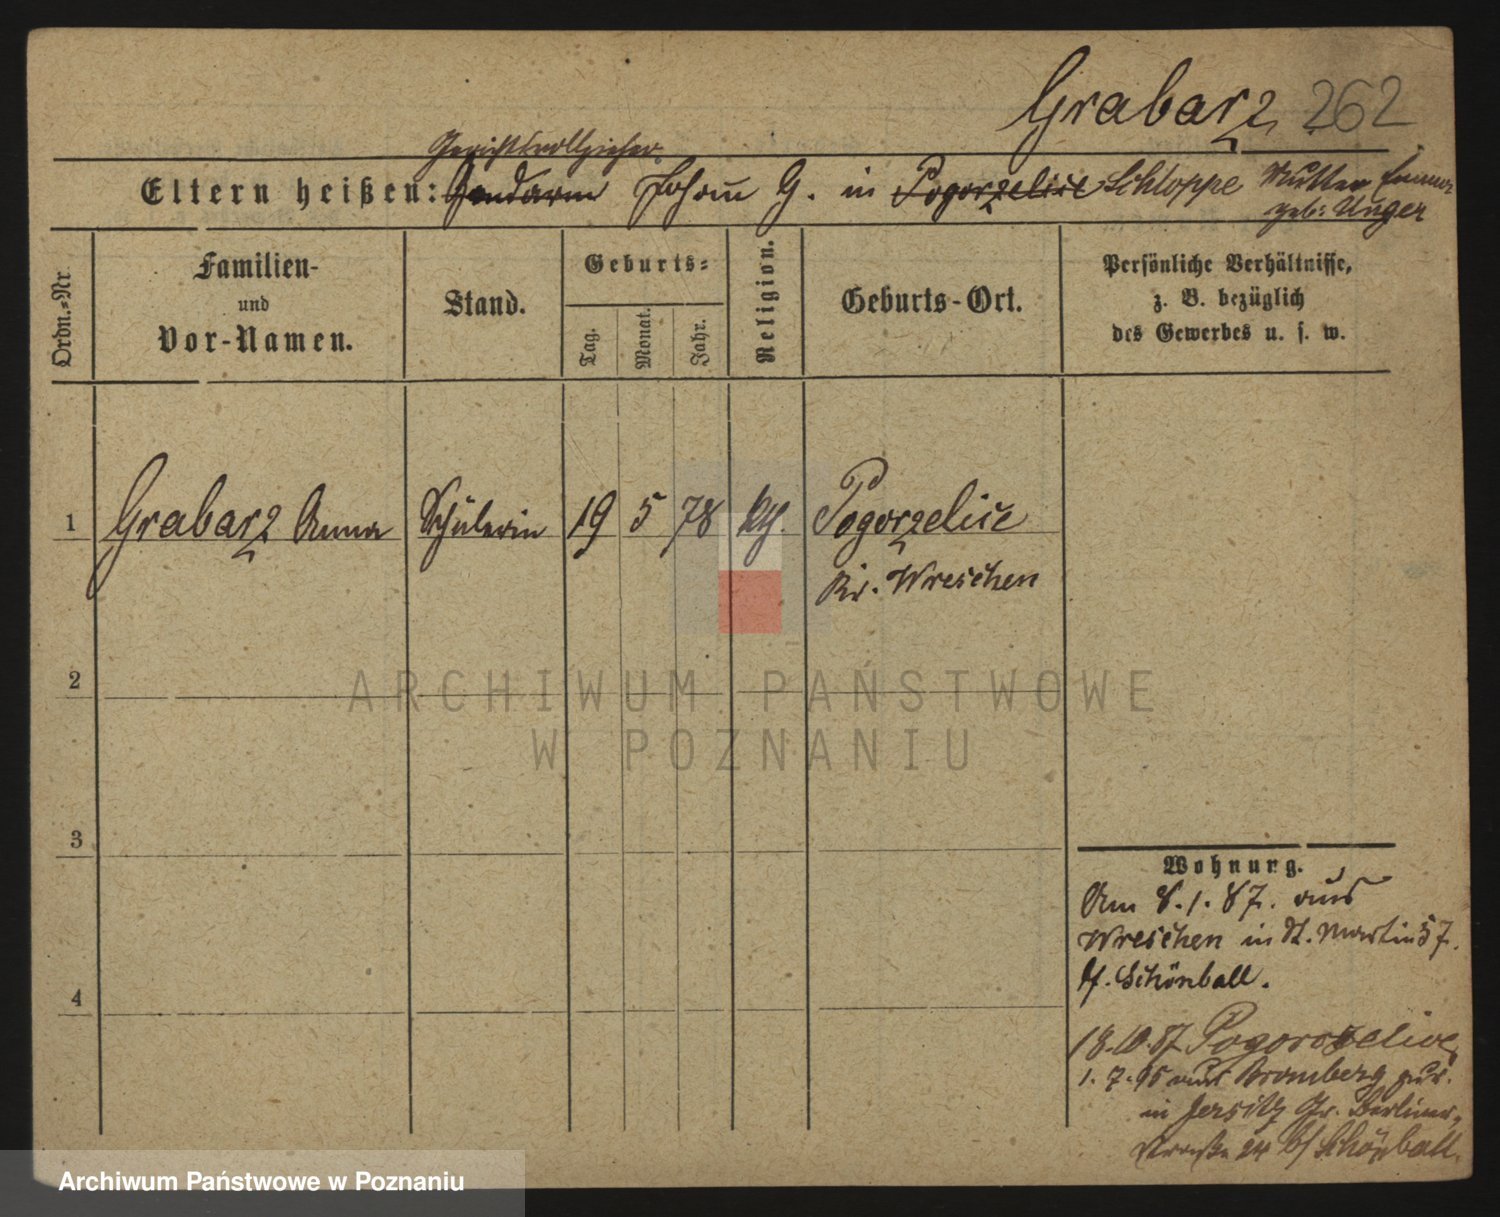 Grabarz 262
Gerichtsvollzieher
Eltern heißen: Gendarm Johann G. in Pogorzelice Schloppe Mutter Emma
geb: Unger
Ordn.-Nr.
Familien-
und
Vor-Namen.
Stand.
Geburts-
Tag.
Monat.
Jahr.
Religion.
Geburts-Ort.
Persönliche Verhältnisse,
z. B. bezüglich
des Gewerbes u. s. w.
1 Grabarz Anna Schülerin 19 5 78 kth. Pogorzelice
Kr. Wreschen
2
3
4
Wohnung.
Am 8.1.87. aus
Wreschen in St. Martin 57.
b/. Schönball.
18.10.87 Pogorzelice
1.7.95 aus Bromberg zur.
in Jersitz Gr. Berliner-
Straße 24 b/ Schönball.
ARCHIWUM PAŃSTWOWE
W POZNANIU
Archiwum Państwowe w Poznaniu